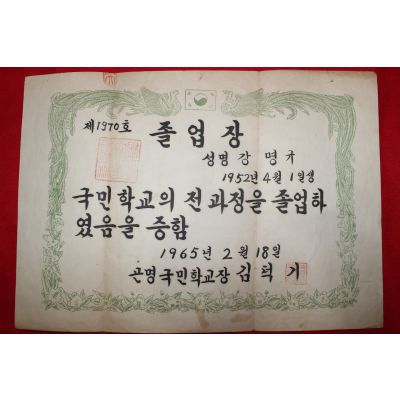 제1970호
졸업장
성명 강 명
1952년 4월 1일생
국민학교의 전 과정을 졸업하
였음을 증함
1965년 2월 18일
근명국민학교장 김 기